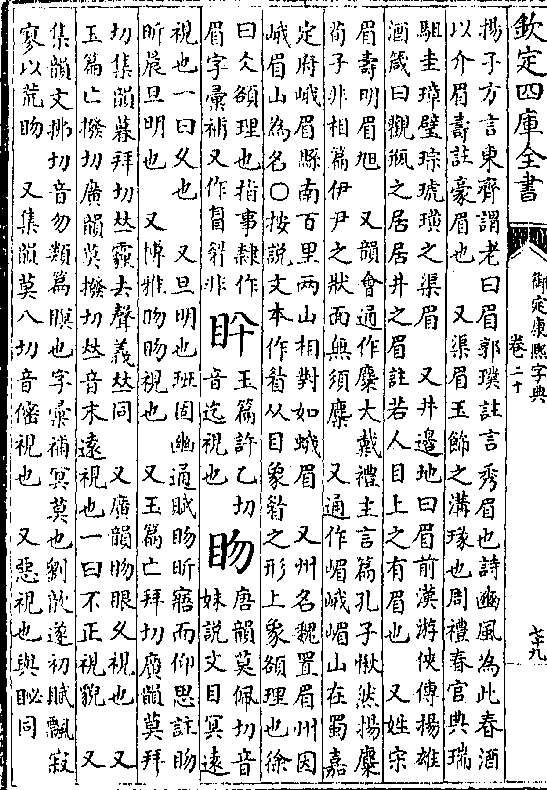 欽定四庫全書
御定康熙字典
卷二十
揚子方言東齊謂老曰眉郭璞註言秀眉也詩豳風為此春酒
以介眉壽註豪眉也　又渠眉玉飾之溝瑑也周禮春官典瑞
駔圭璋璧琮琥璜之渠眉　又井邊地曰眉前漢游俠傳揚雄
酒箴曰觀瓶之居居井之眉註若人目上之有眉也　又姓宗
眉壽明眉旭　又韻會通作麋大戴禮主言篇孔子愀然揚麋
荀子非相篇伊尹之狀面無須麋　又通作嵋峨嵋山在蜀嘉
定府峨眉縣南百里两山相對如蛾眉　又州名魏置眉州因
峨眉山為名○按說文本作睂从目象睂之形上象頟理也徐
曰仌頟理也指事隸作
眉字彙補又作𥅘𥇛非
盻
玉篇許乙切
音迄視也
眆
唐韻莫佩切音
妹說文目冥遠
視也一曰久也　又旦明也班固幽通賦眆昕寤而仰思註眆
昕晨旦明也　又博雅眆眆視也　又玉篇亡拜切廣韻莫拜
切集韻暮拜切𠀤霾去聲義𠀤同　又廣韻眆眼久視也　又
玉篇亡撥切廣韻莫撥切𠀤音末遠視也一曰不正視貌　又
集韻文拂切音勿類篇瞑也字彙補冥莫也劉歆遂初賦飄寂
寥以荒眆　又集韻莫八切音傛視也　又惡視也與䀛同